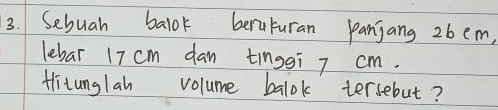 3. Sebuah balok berukuran panjang 26 cm,
lebar 17 cm dan tinggi 7 cm.
Hitunglah volume balok tersebut?